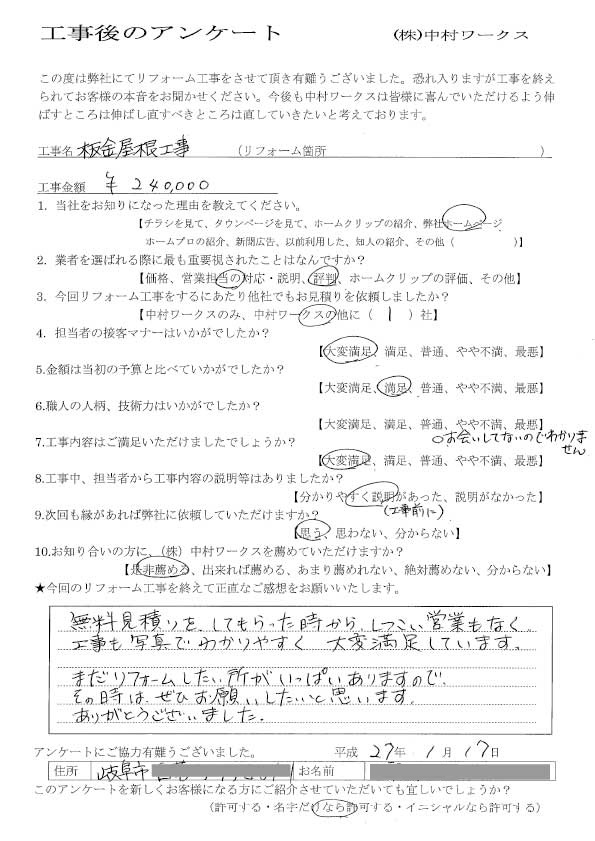 工事後のアンケート
(株)中村ワークス
この度は弊社にてリフォーム工事をさせて頂き有難うございました。恐れ入りますが工事を終え
られてお客様の本音をお聞かせください。今後も中村ワークスは皆様に喜んでいただけるよう伸
ばすところは伸ばし直すべきところは直していきたいと考えております。
工事名 板金屋根工事 (リフォーム箇所 )
工事金額 ¥ 240,000
1. 当社をお知りになった理由を教えてください。
【チラシを見て、タウンページを見て、ホームクリップの紹介、弊社ホームページ
ホームプロの紹介、新聞広告、以前利用した、知人の紹介、その他( )】
2. 業者を選ばれる際に最も重要視されたことはなんですか?
【価格、営業担当の対応・説明、評判、ホームクリップの評価、その他】
3. 今回リフォーム工事をするにあたり他社でもお見積りを依頼しましたか?
【中村ワークスのみ、中村ワークスの他に( 1 )社】
4. 担当者の接客マナーはいかがでしたか?
【大変満足、満足、普通、やや不満、最悪】
5.金額は当初の予算と比べていかがでしたか?
【大変満足、満足、普通、やや不満、最悪】
6.職人の人柄、技術力はいかがでしたか?
【大変満足、満足、普通、やや不満、最悪】
7.工事内容はご満足いただけましたでしょうか?
○お会いしてないのでわかりま
せん
【大変満足、満足、普通、やや不満、最悪】
8.工事中、担当者から工事内容の説明等はありましたか?
【分かりやすく説明があった、説明がなかった】
9.次回も縁があれば弊社に依頼していただけますか?
(工事前に)
【思う、思わない、分からない】
10.お知り合いの方に、(株)中村ワークスを薦めていただけますか?
【是非薦める、出来れば薦める、あまり薦めれない、絶対薦めない、分からない】
★今回のリフォーム工事を終えて正直なご感想をお願いいたします。
無料見積りを、してもらった時から、しつこい営業もなく
工事も写真でわかりやすく 大変満足しています。
まだリフォームしたい所がいっぱいありますので、
その時は、ぜひお願いしたいと思います。
ありがとうございました。
アンケートにご協力有難うございました。 平成 27年 1月 17日
住所 岐阜市 お名前
このアンケートを新しくお客様になる方にご紹介させていただいても宜しいでしょうか?
(許可する・名字だけなら許可する・イニシャルなら許可する)